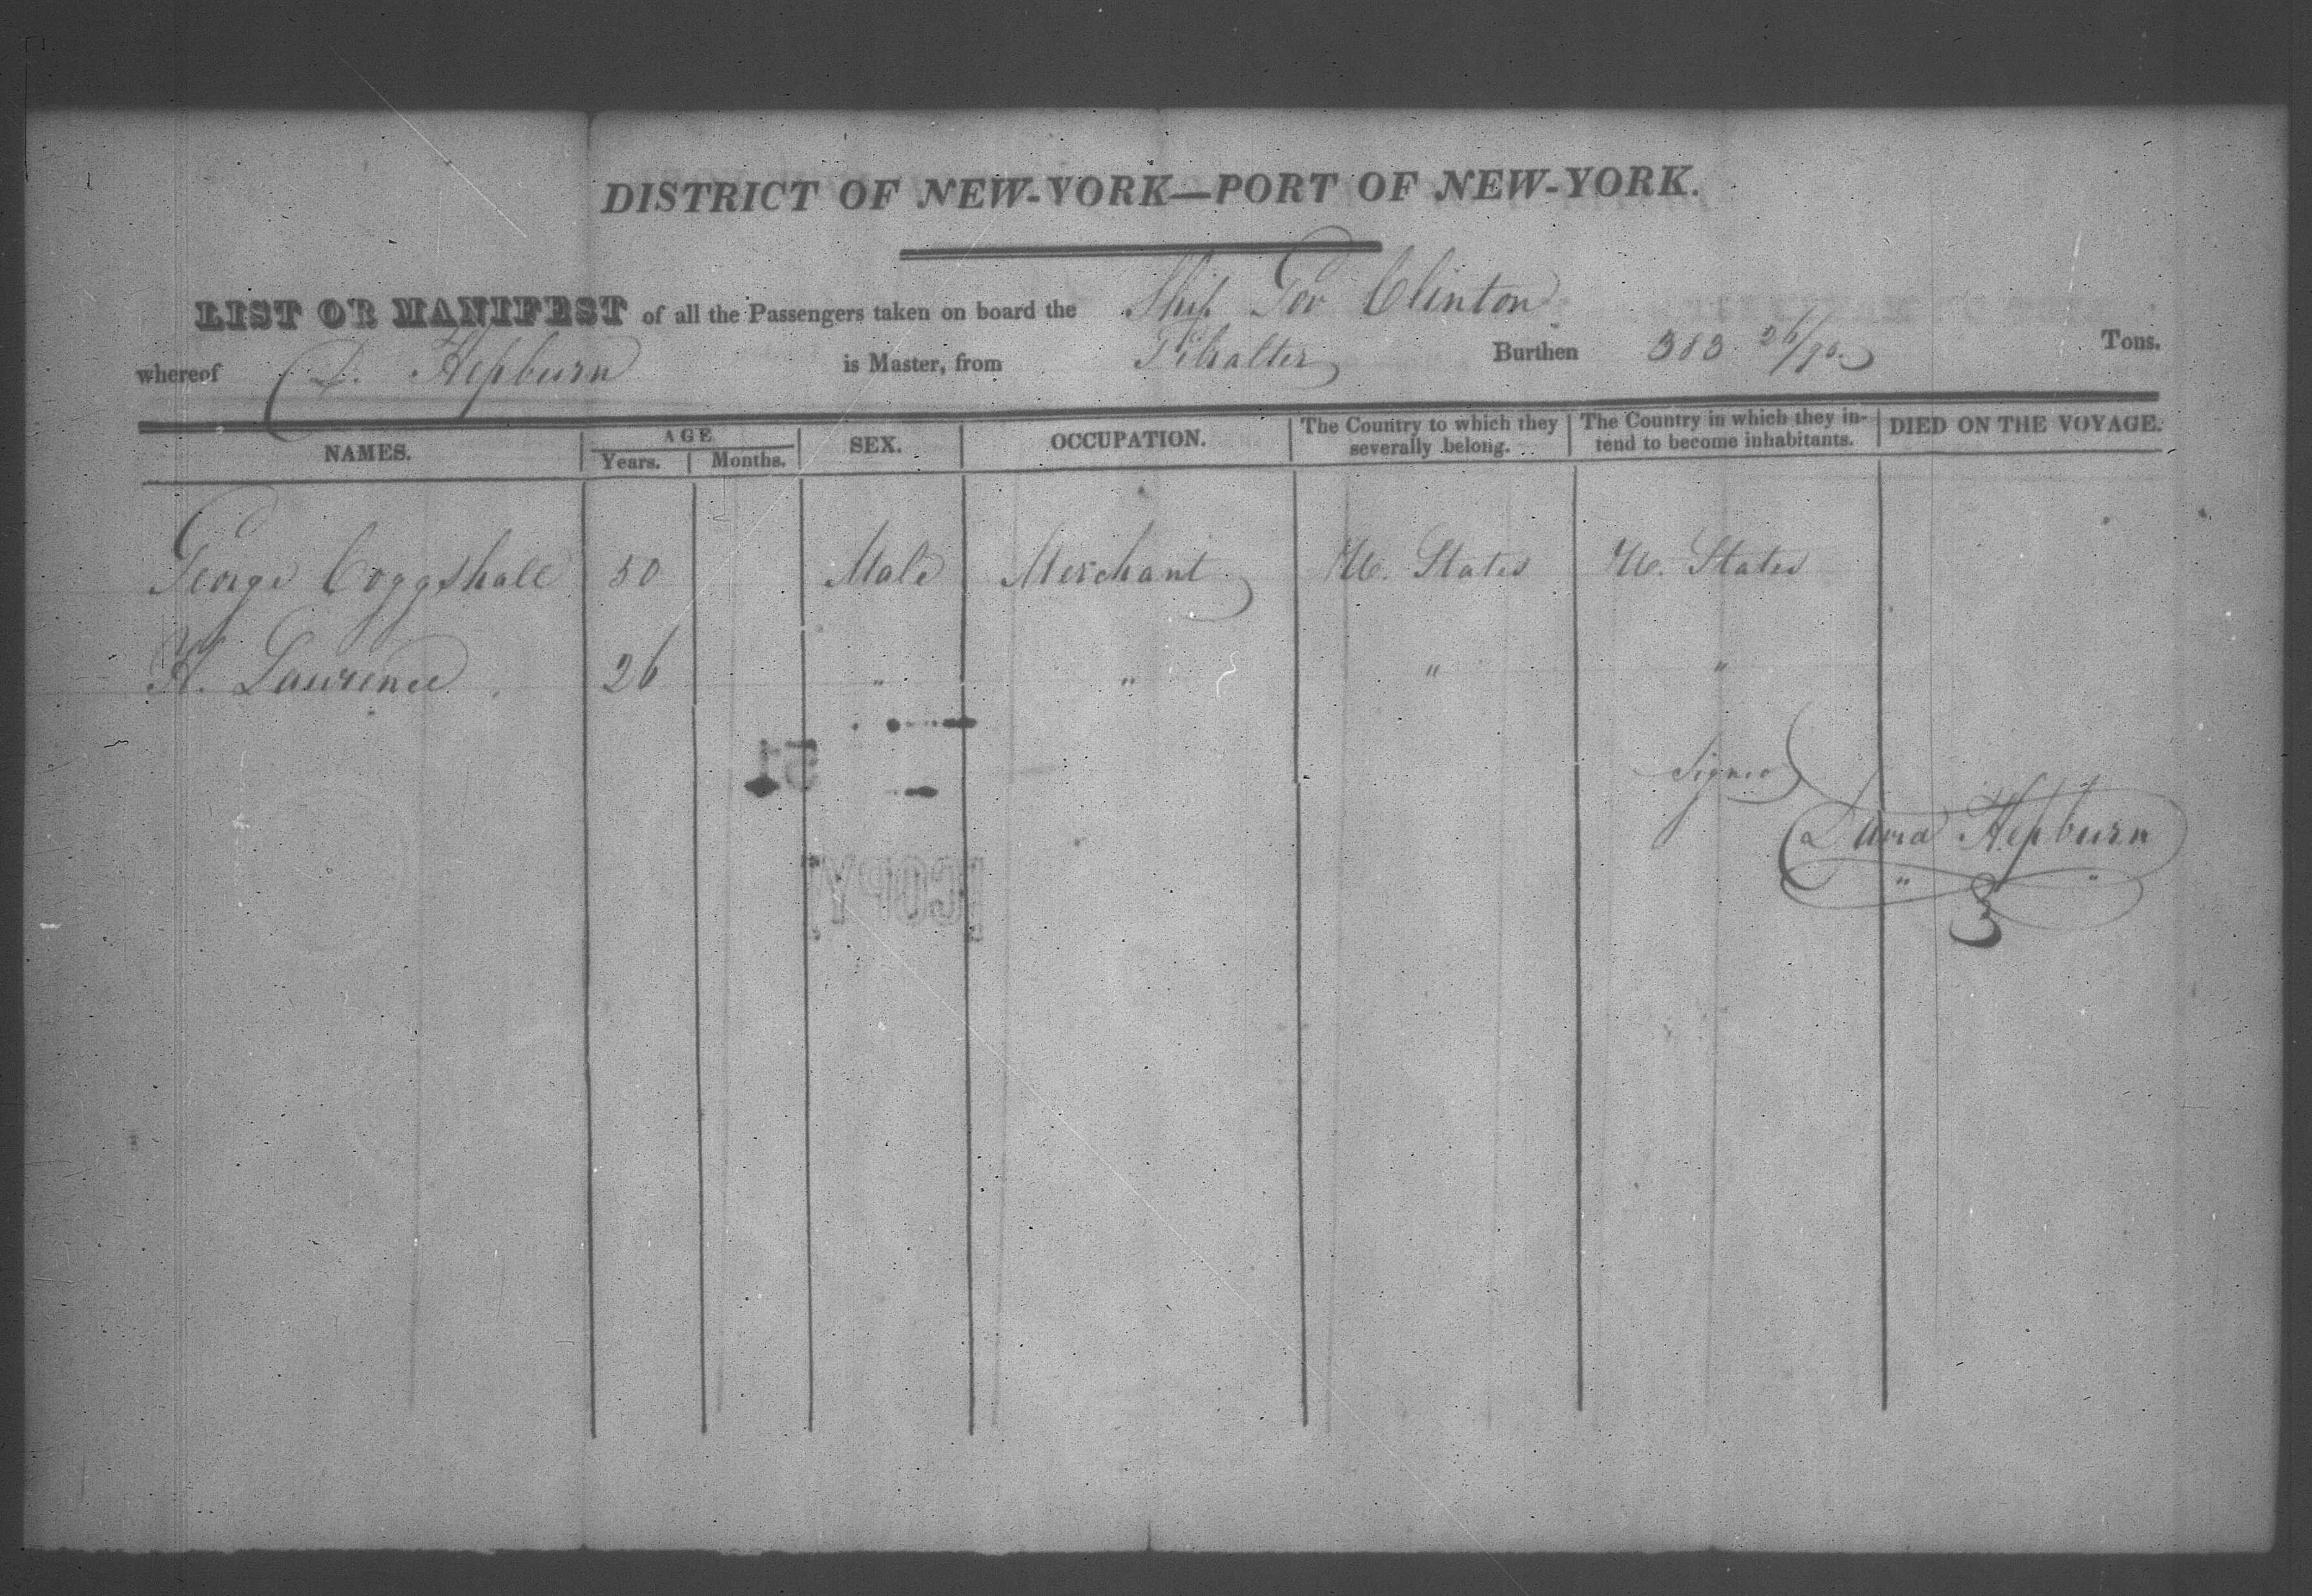 DISTRICT OF NEW-YORK—PORT OF NEW-YORK.
LIST OR MANIFEST of all the Passengers taken on board the Ship Gov Clinton
whereof D. Hepburn is Master, from Gibralter Burthen 383 26/95 Tons.
NAMES. AGE Years. Months. SEX. OCCUPATION. The Country to which they severally belong. The Country in which they in-tend to become inhabitants. DIED ON THE VOYAGE.
George Coggshall 50 Male Merchant U. States U. States
H. Lawrence 26 " " " "
51
Signed
David Hepburn
" "
COPY